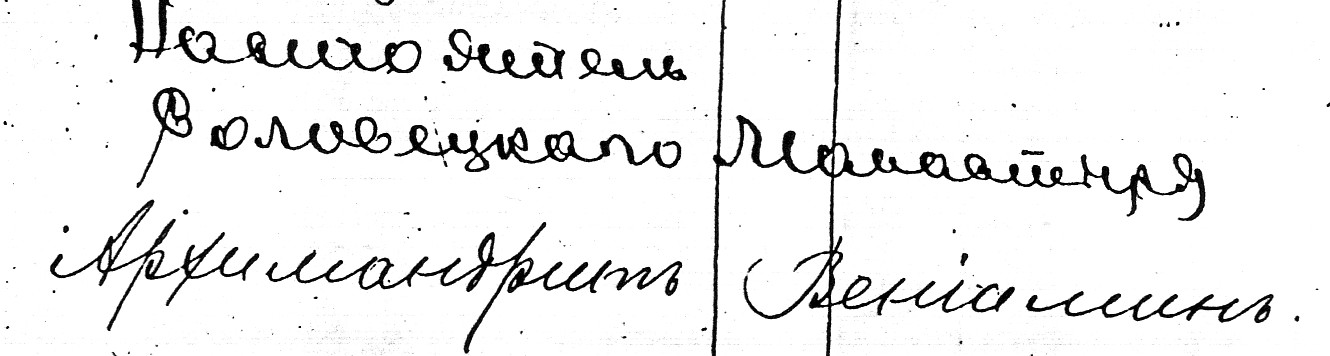 Настоятель
Соловецкаго Монастыря
Архимандритъ Веніаминъ.